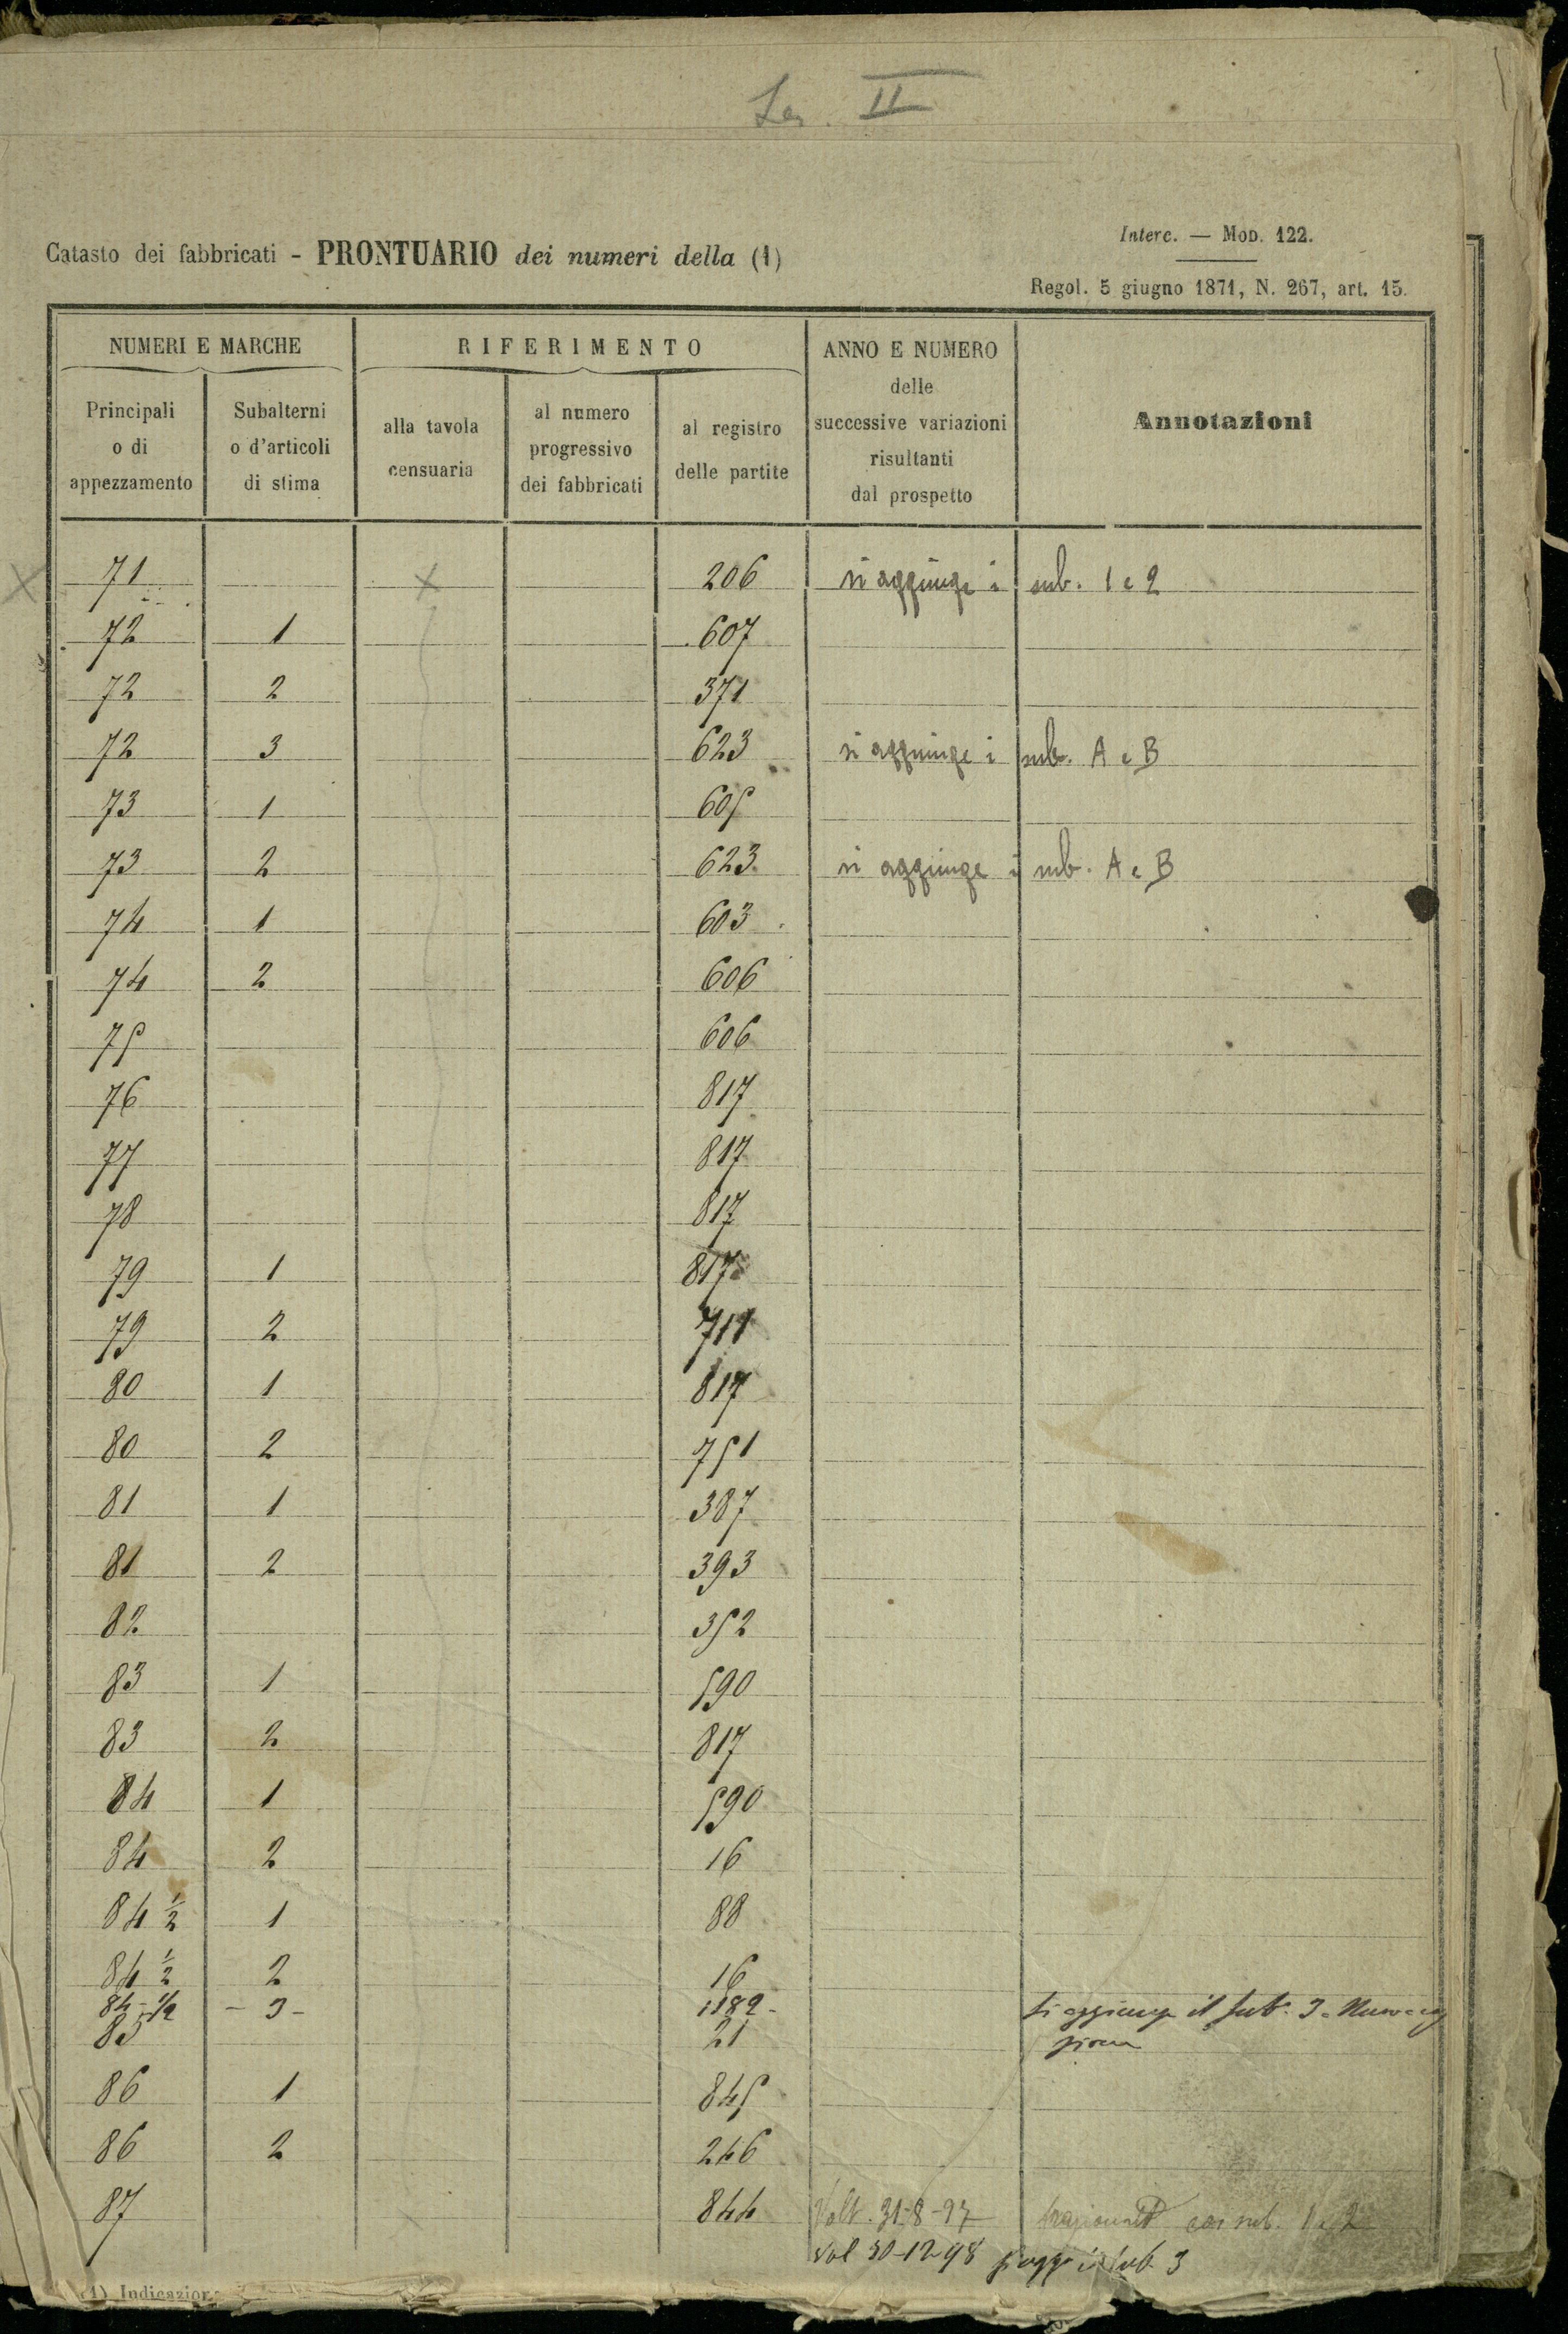 Sez. II
Interc. — MOD. 122.
Catasto dei fabbricati - PRONTUARIO dei numeri della (1)
Regol. 5 giugno 1871, N. 267, art. 15.
NUMERI E MARCHE RIFERIMENTO ANNO E NUMERO delle successive variazioni risultanti dal prospetto Annotazioni
Principali o di appezzamento Subalterni o d'articoli di stima alla tavola censuaria al numero progressivo dei fabbricati al registro delle partite
71 206 si aggiunge i sub. 1 e 2
72 1 607
72 2 371
72 3 623 si aggiunge i sub. A e B
73 1 605
73 2 623 si aggiunge i sub. A e B
74 1 603
74 2 606
75 606
76 817
77 817
78 817
79 1 817
79 2 711
80 1 817
80 2 751
81 1 387
81 2 393
82 352
83 1 590
83 2 817
84 1 590
84 2 16
84 1/2 1 88
84 1/2 2 16
84-1/2 - 3 - 1182 - si aggiunge il sub. 3
85 21
86 1 845
86 2 246
87 844 Volt. 31-8-97 sub. 1 e 2
Vol 30-12-98 sub. 3
(1) Indicazion